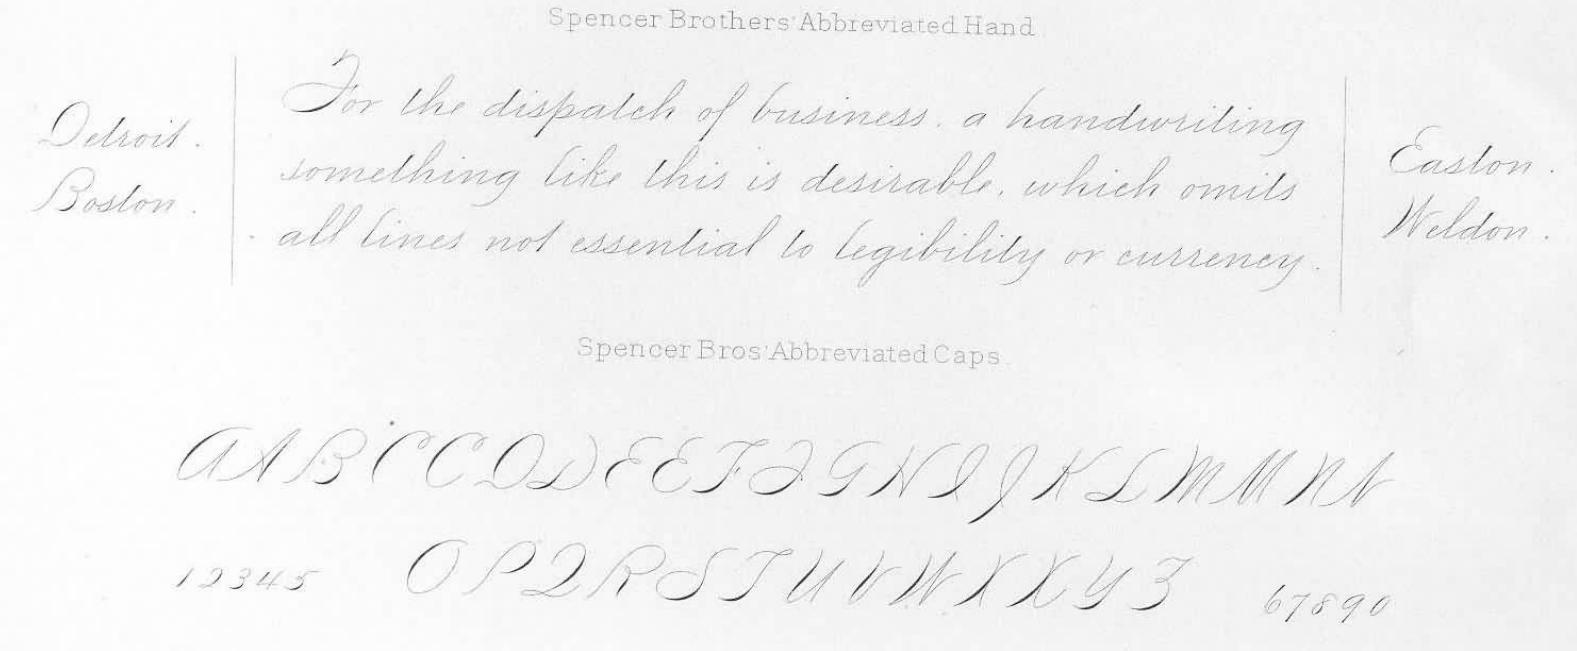 Spencer Brothers' Abbreviated Hand
Detroit.
Boston.
For the dispatch of business, a handwriting
something like this is desirable, which omits
all lines not essential to legibility or currency.
Easton.
Weldon.
Spencer Bros' Abbreviated Caps.
A A B C C D D E E F F G H I J K L M M N N
1 2 3 4 5
O P Q R S T U V W X X Y Z
6 7 8 9 0